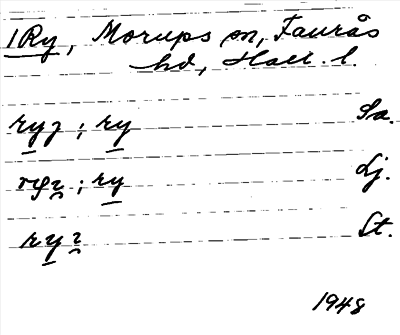 1 Ry, Morups sn, Faurås
hd, Hall. l.
ryʒ ; ry Sa.
; ry Lj.
ry St.
1948